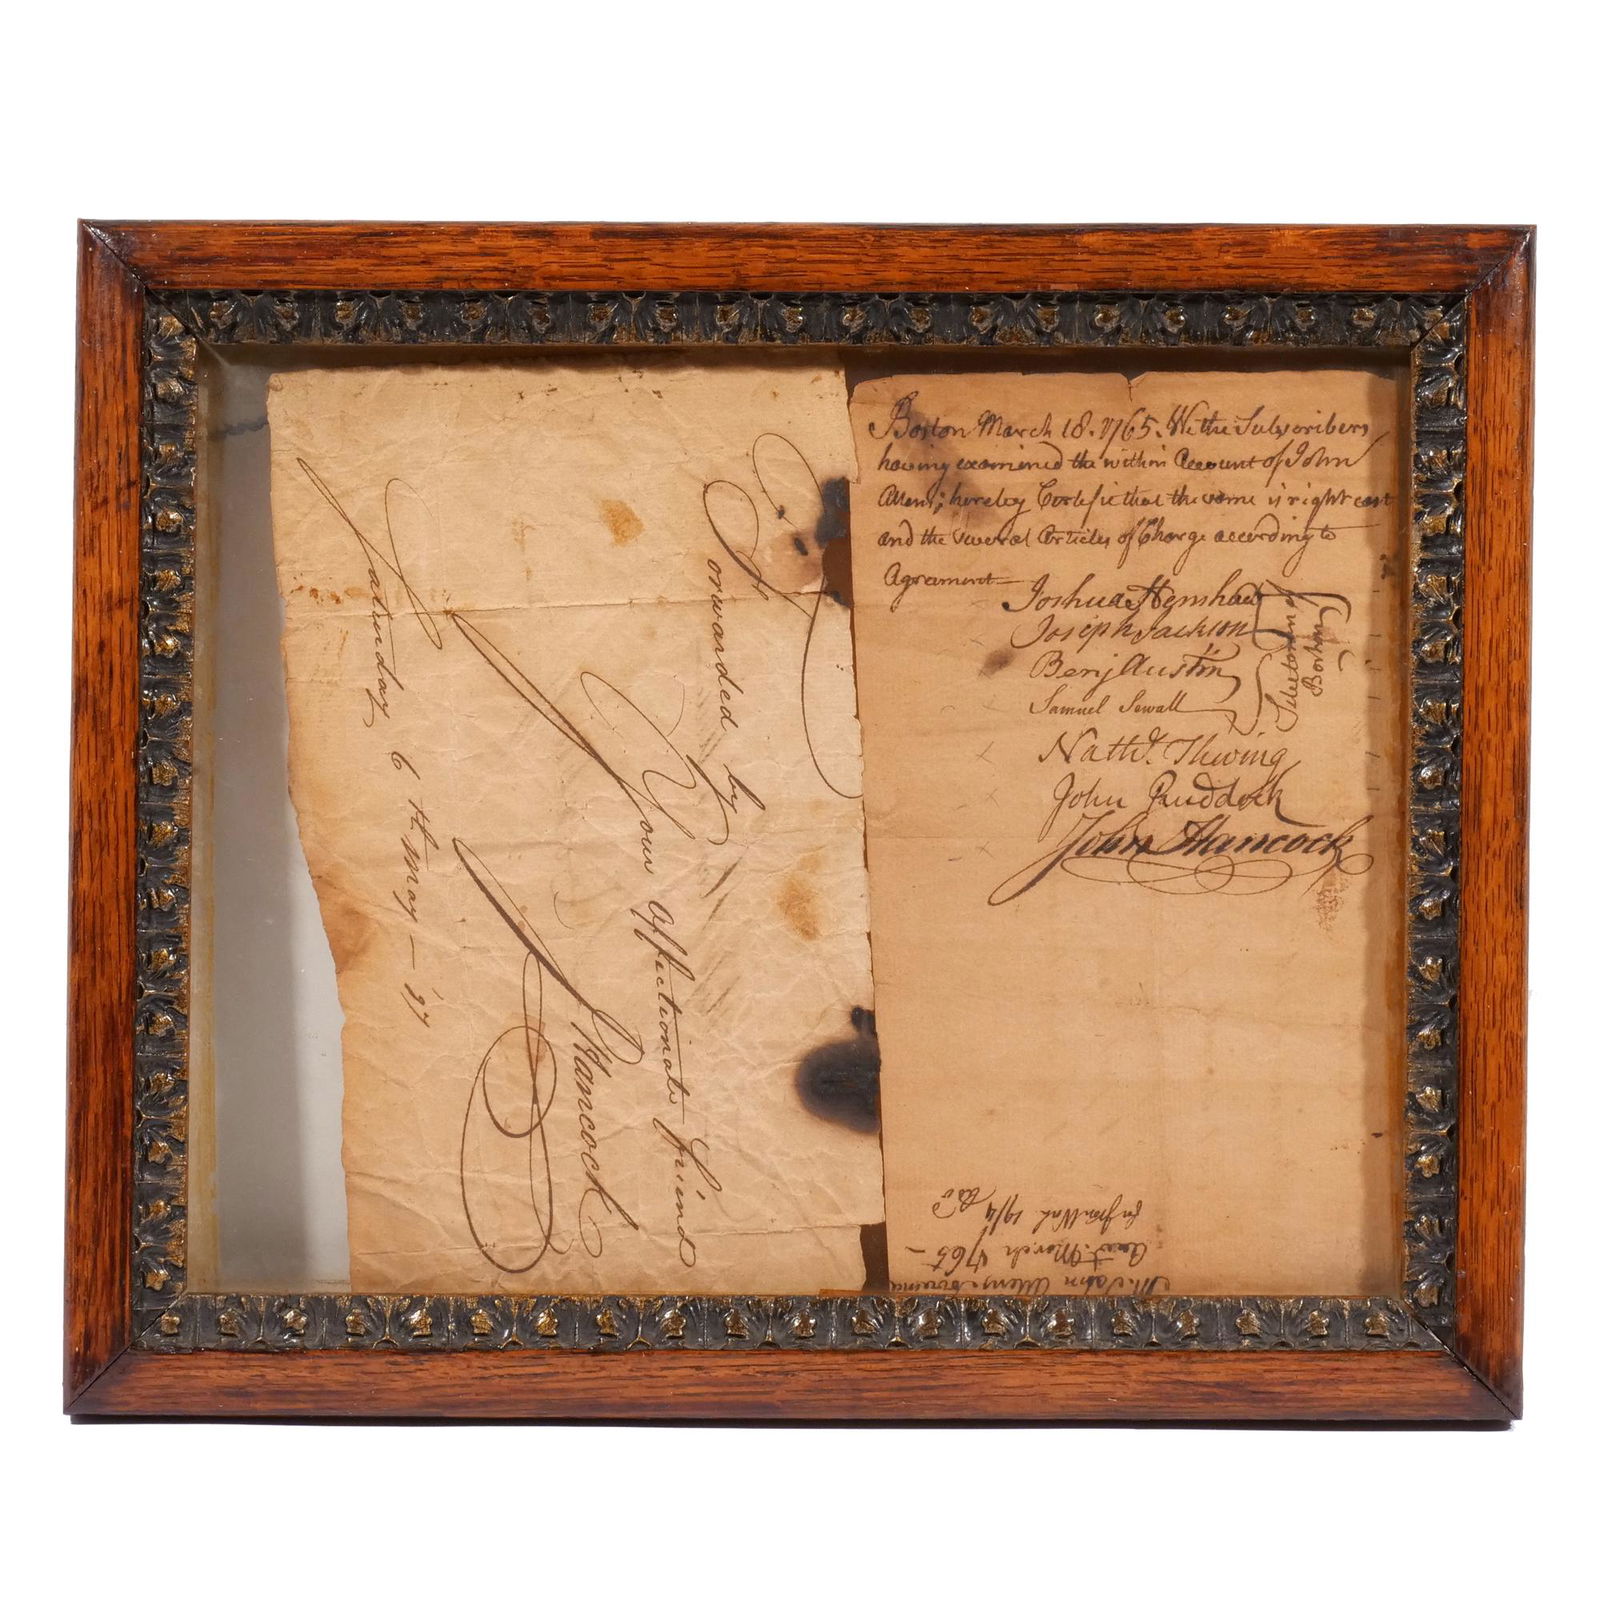 Forwarded by
Your affectionate friend
J Hancock
Saturday 6th may - '97
Boston March 18. 1765. We the Subscribers
having examined the within Account of John
Allen; hereby Certifie that the same is right cast
and the several Articles of Charge according to
Agreament
Joshua Henshaw
Joseph Jackson
Benj Austin
Samuel Sewall
Selectmen of
Boston
Natt'l. Thwing
John Ruddock
John Hancock
Mr. John Allens
Acco't. March 1765 -
19/4